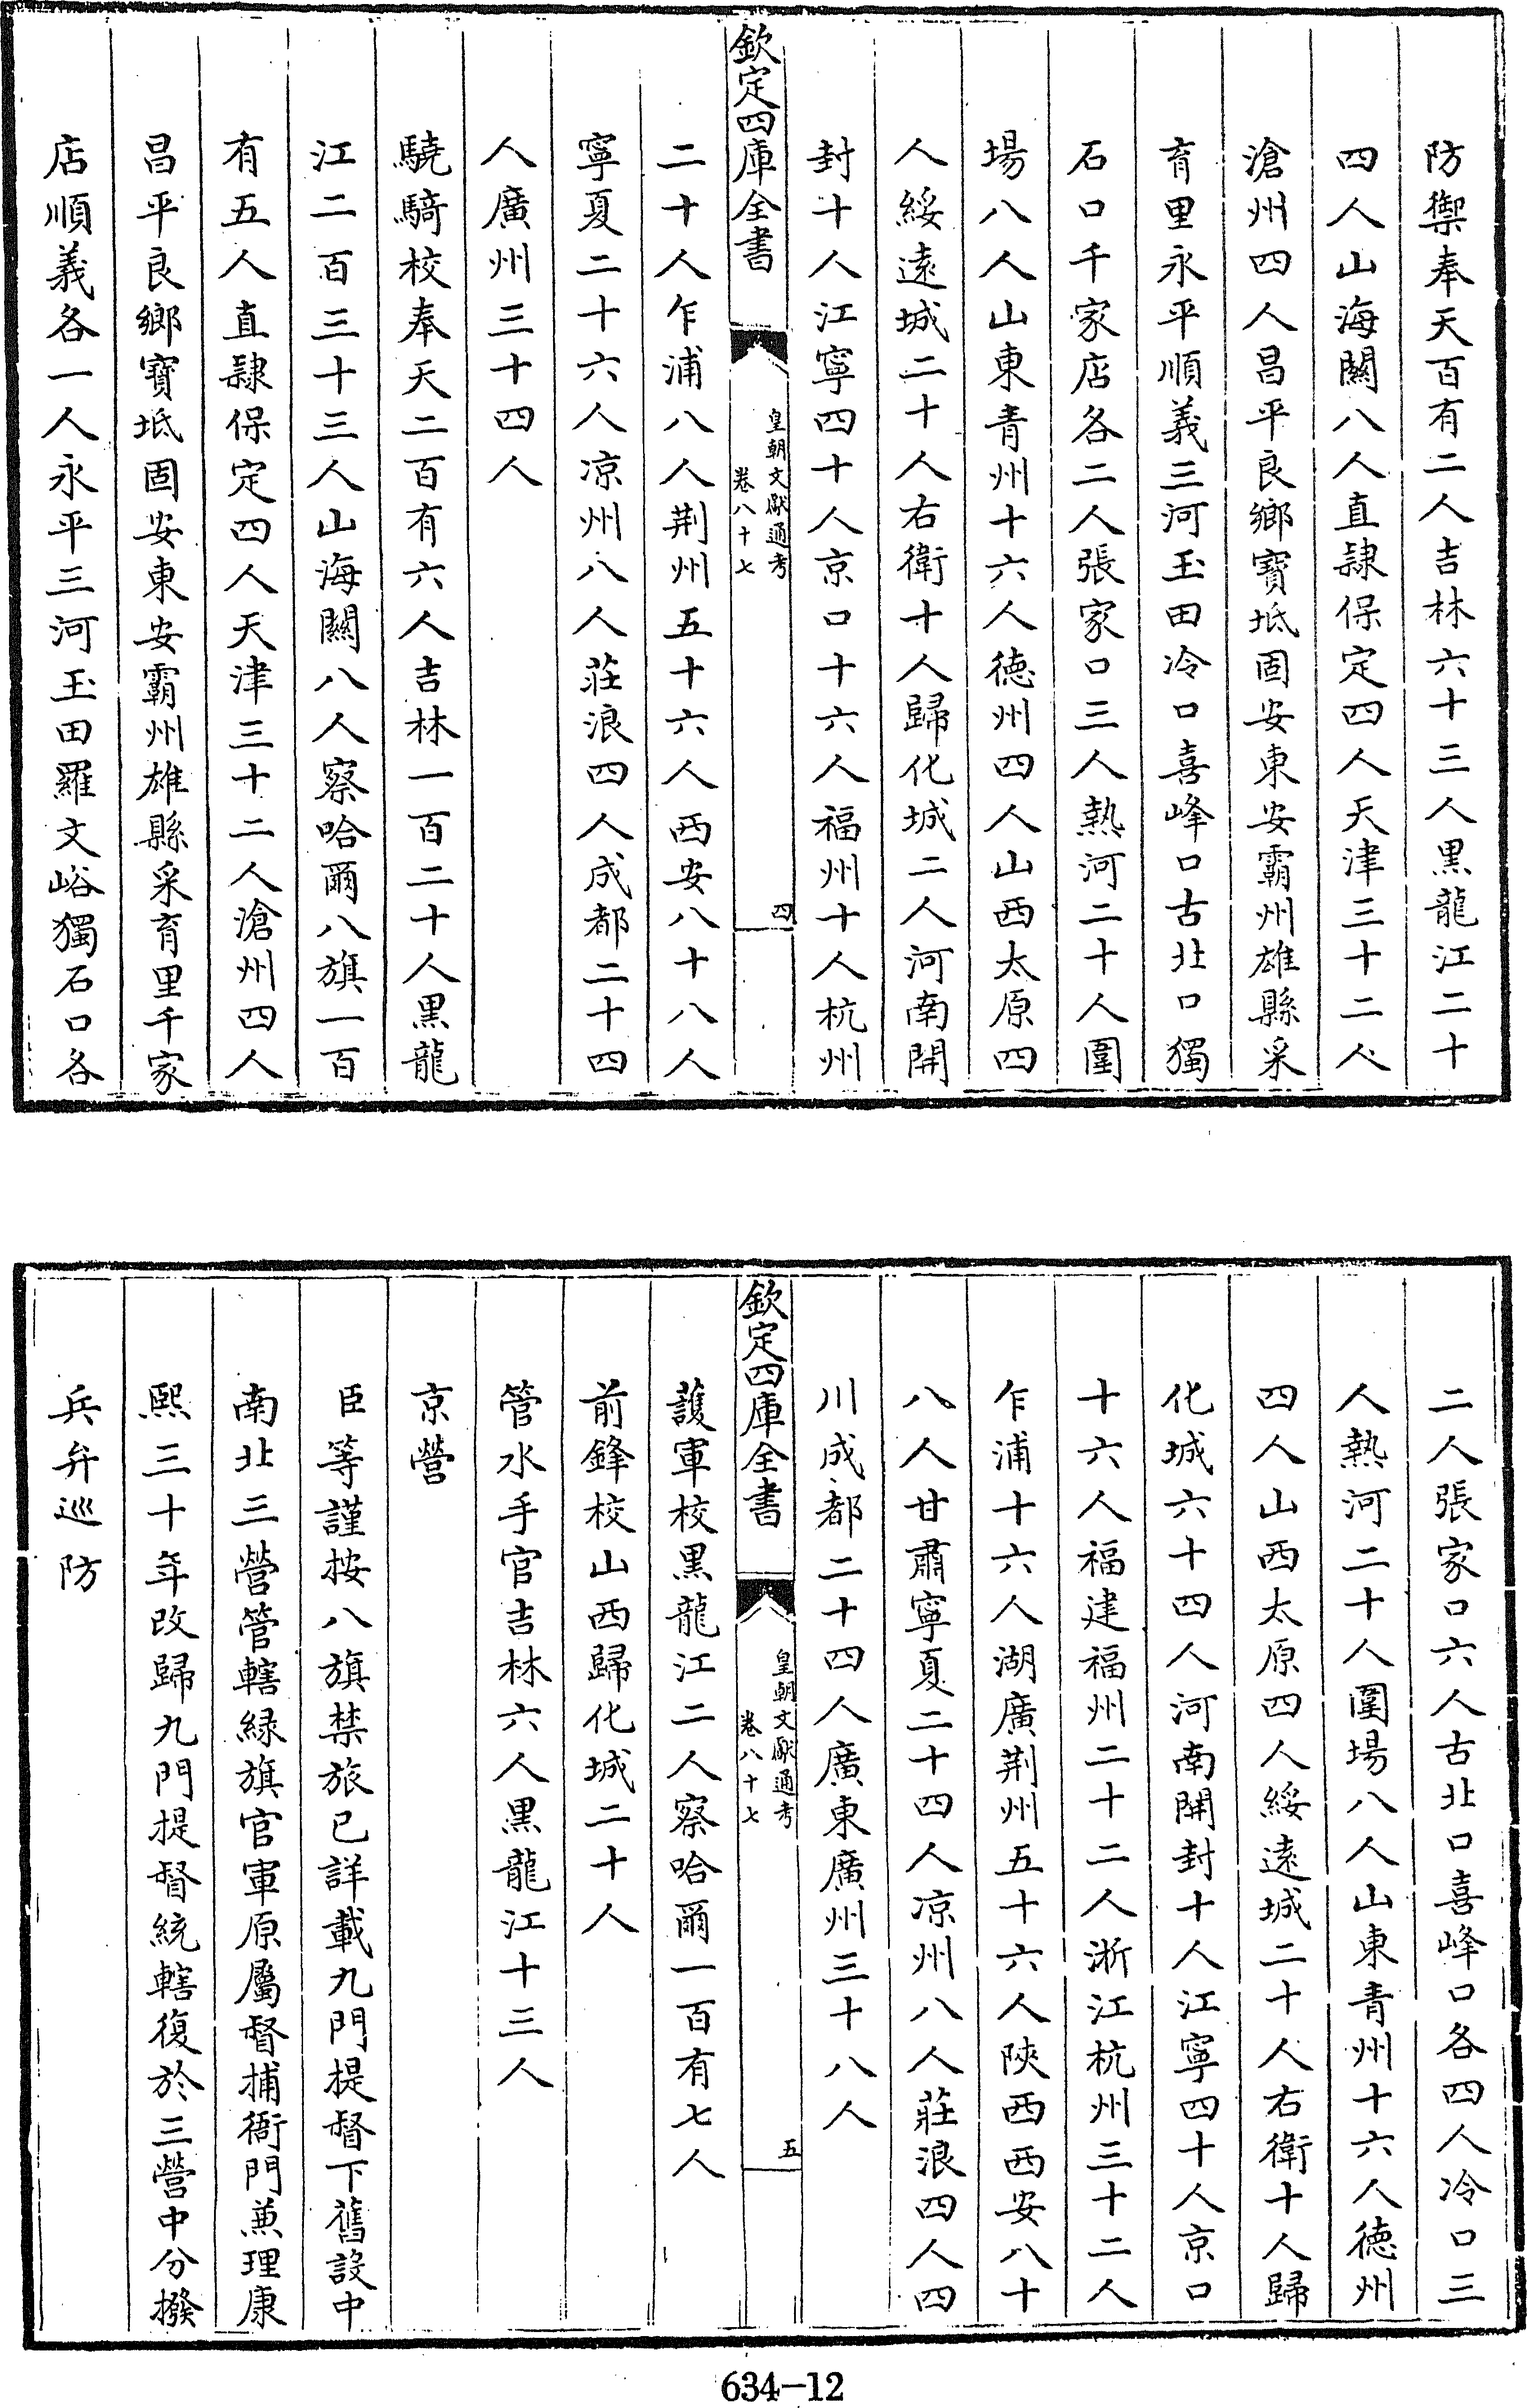 防禦奉天百有二人吉林六十三人黒龍江二十
四人山海關八人直隸保定四人天津三十二人
滄州四人昌平良鄉寶坻固安東安霸州雄縣采
育里永平順義三河玉田冷口喜峰口古北口獨
石口千家店各二人張家口三人熱河二十人圍
場八人山東青州十六人德州四人山西太原四
人綏遠城二十人右衛十人歸化城二人河南開
封十人江寧四十人京口十六人福州十人杭州
欽定四庫全書
皇朝文獻通考
卷八十七
四
二十人乍浦八人荆州五十六人西安八十八人
寧夏二十六人凉州八人莊浪四人成都二十四
人廣州三十四人
驍騎校奉天二百有六人吉林一百二十人黒龍
江二百三十三人山海關八人察哈爾八旗一百
有五人直隸保定四人天津三十二人滄州四人
昌平良鄉寶坻固安東安霸州雄縣采育里千家
店順義各一人永平三河玉田羅文峪獨石口各
二人張家口六人古北口喜峰口各四人冷口三
人熱河二十人圍場八人山東青州十六人德州
四人山西太原四人綏遠城二十人右衛十人歸
化城六十四人河南開封十人江寧四十人京口
十六人福建福州二十二人浙江杭州三十二人
乍浦十六人湖廣荆州五十六人陜西西安八十
八人甘肅寧夏二十四人凉州八人莊浪四人四
川成都二十四人廣東廣州三十八人
欽定四庫全書
皇朝文獻通考
卷八十七
五
護軍校黒龍江二人察哈爾一百有七人
前鋒校山西歸化城二十人
管水手官吉林六人黒龍江十三人
京營
臣等謹按八旗禁旅已詳載九門提督下舊設中
南北三營管轄緑旗官軍原屬督捕衙門兼理康
熙三十年改歸九門提督統轄復於三營中分撥
兵弁巡防
634-12